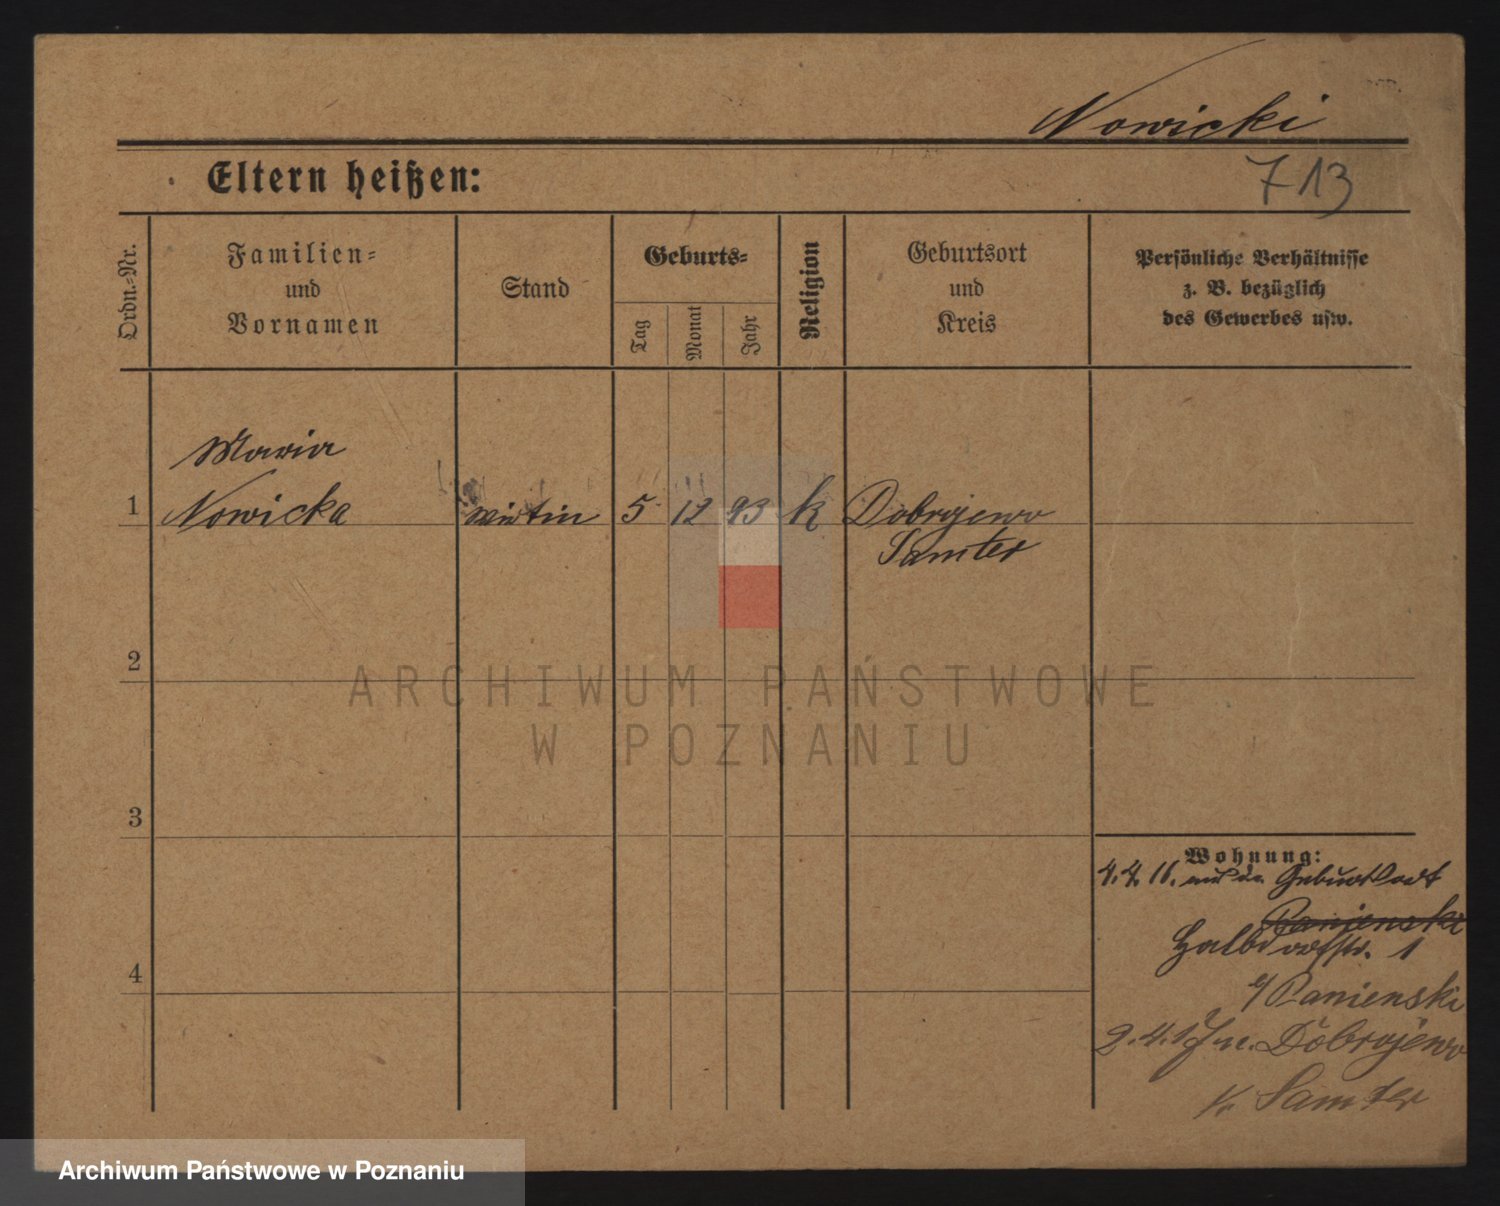 Nowicki
Eltern heißen:
713
Ordn.-Nr.
Familien-
und
Vornamen
Stand
Geburts-
Tag
Monat
Jahr
Religion
Geburtsort
und
Kreis
Persönliche Verhältnisse
z. B. bezüglich
des Gewerbes usw.
Maria
1 Nowicka Wirtin 5 12 93 k Dobrojewo
Samter
2
ARCHIWUM PAŃSTWOWE
W POZNANIU
3
Wohnung:
4.4.16. aus dem Geburtsort
Panienski
Halbdorfstr. 1
b/ Panienski
4
2.4.17 n. Dobrojewo
Kr. Samter
Archiwum Państwowe w Poznaniu